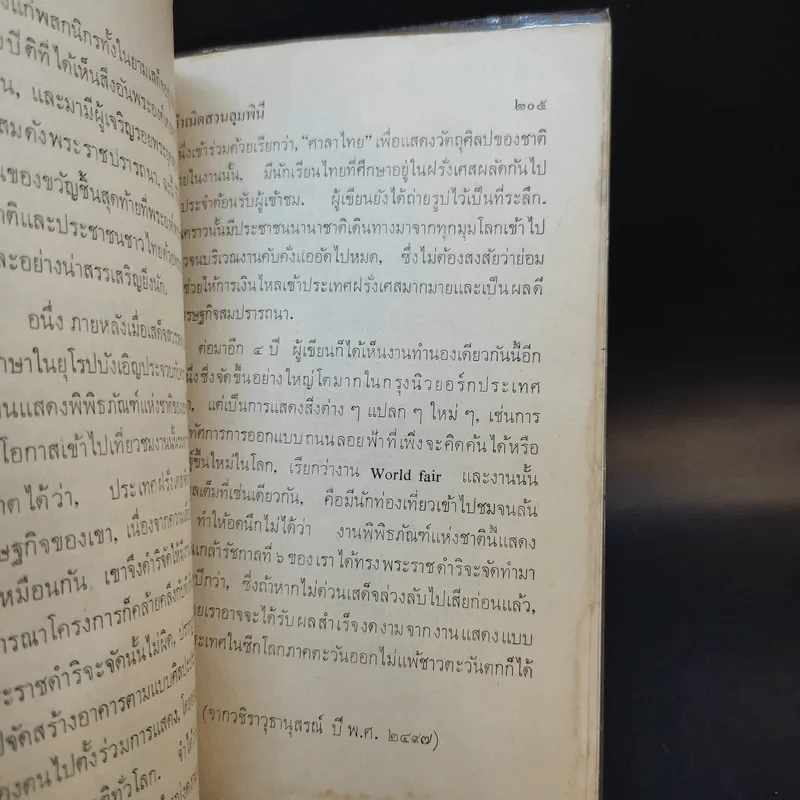 แก่พสกนิกรทั้งในยามเสด็จ
ปีติที่ได้เห็นสิ่งอันพระองค์
และมามีผู้เจริญรอยพระ
สมดังพระราชปรารถนา,
ของขวัญชิ้นสุดท้ายที่พระองค์
และประชาชนชาวไทยด้วย
และอย่างน่าสรรเสริญยิ่งนัก.
อนึ่ง ภายหลังเมื่อเสด็จสวรรค
ในยุโรปบังเอิญประจวบกับ
แสดงพิพิธภัณฑ์แห่งชาติของ
โอกาสเข้าไปเที่ยวชมงานนั้น
ได้ว่า, ประเทศฝรั่งเศส
เศรษฐกิจของเขา, เนื่องจากความ
เหมือนกัน เขาจึงดำริจัดให้
โครงการก็คล้ายคลึงกับที่
พระราชดำริจะจัดนั้นไม่ผิด,
จัดสร้างอาคารตามแบบศิลป
ของตนไปตั้งร่วมการแสดง,
ทั่วโลก.
กำเนิดสวนลุมพินี ๒๐๕
หนึ่งเข้าร่วมด้วยเรียกว่า, “ศาลาไทย” เพื่อแสดงวัตถุศิลปของชาติ
ภายในงานนั้น, มีนักเรียนไทยที่ศึกษาอยู่ในฝรั่งเศสผลัดกันไป
ประจำต้อนรับผู้เข้าชม. ผู้เขียนยังได้ถ่ายรูปไว้เป็นที่ระลึก.
คราวนั้นมีประชาชนนานาชาติเดินทางมาจากทุกมุมโลกเข้าไป
จนบริเวณงานคับคั่งแออัดไปหมด, ซึ่งไม่ต้องสงสัยว่าย่อม
ช่วยให้การเงินไหลเข้าประเทศฝรั่งเศสมากมายและเป็นผลดี
เศรษฐกิจสมปรารถนา.
ต่อมาอีก ๔ ปี ผู้เขียนก็ได้เห็นงานทำนองเดียวกันนี้อีก
หนึ่งซึ่งจัดขึ้นอย่างใหญ่โตมากในกรุงนิวยอร์กประเทศ
แต่เป็นการแสดงสิ่งต่าง ๆ แปลก ๆ ใหม่ ๆ, เช่นการ
ทัศการการออกแบบถนนลอยฟ้าที่เพิ่งจะคิดค้นได้หรือ
ขึ้นใหม่ในโลก, เรียกว่างาน World fair และงานนั้น
เต็มที่เช่นเดียวกัน, คือมีนักท่องเที่ยวเข้าไปชมจนล้น
ทำให้อดนึกไม่ได้ว่า งานพิพิธภัณฑ์แห่งชาตินี้แสดง
เกล้ารัชกาลที่ ๖ ของเราได้ทรงพระราชดำริจะจัดทำมา
กว่า, ซึ่งถ้าหากไม่ด่วนเสด็จล่วงลับไปเสียก่อนแล้ว,
เราอาจจะได้รับผลสำเร็จงดงามจากงานแสดงแบบ
ประเทศในซีกโลกภาคตะวันออกไม่แพ้ชาวตะวันตกก็ได้
(จากวชิราวุธานุสรณ์ ปี พ.ศ. ๒๔๙๗)